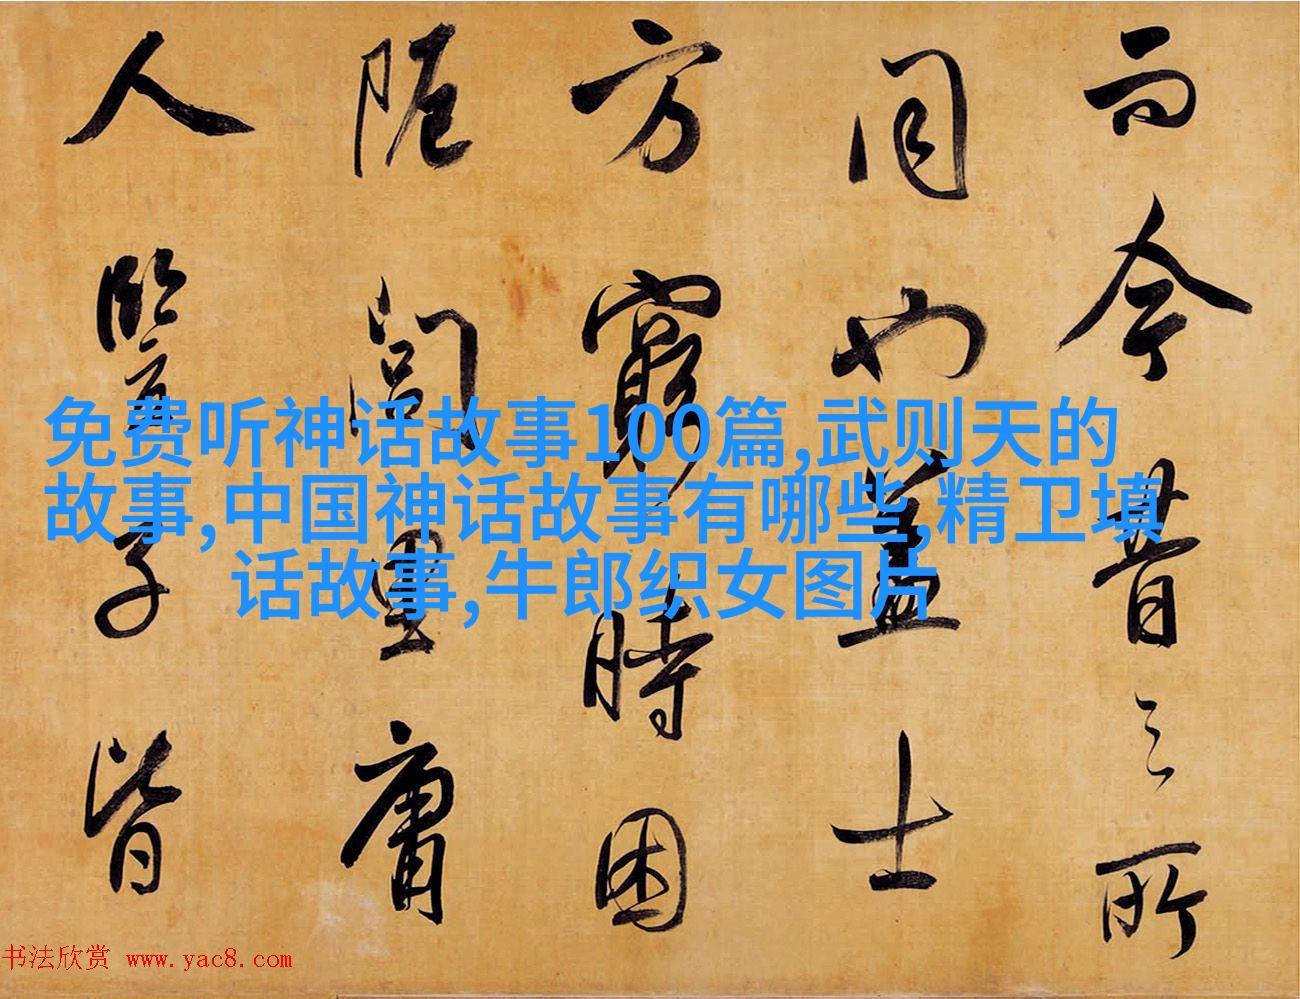 而今昔之所
同也蓋士
方窮時困
阨閭里庸
人豎子皆
免费听神话故事100篇,武则天的
故事,中国神话故事有哪些,精卫填
话故事,牛郎织女图片
书法欣赏 www.yac8.com